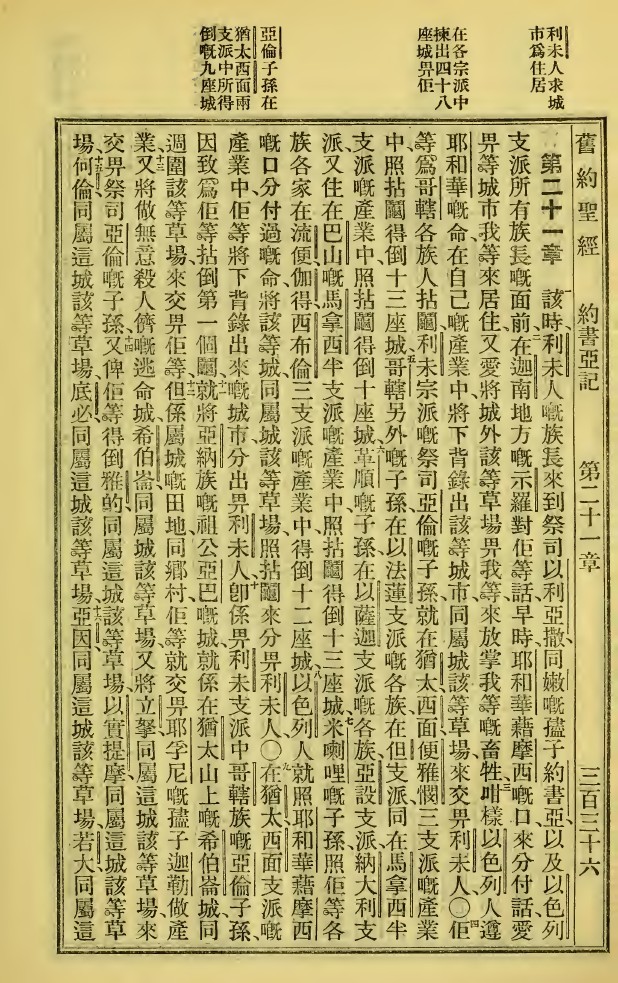 利未人求城
市爲住居
在各宗派中
揀出四十八
座城畀佢
亞倫子孫在
猶太西面兩
支派中所得
倒嘅九座城
舊約聖經　約書亞記　第二十一章　三百三十六
第二十一章　一該時、利未人嘅族長來到祭司以利亞撒、同嫩嘅孻子約書亞、以及以色列
支派所有族長嘅面前、二在迦南地方嘅示羅對佢等話、早時耶和華藉摩西嘅口來分付話、愛
畀等城市我等來居住、又愛將城外該等草場畀我等來放掌我等嘅畜牲、三咁樣以色列人遵
耶和華嘅命、在自己嘅產業中、將下背錄出該等城市、同屬城該等草場、來交畀利未人、〇四佢
等爲哥轄各族人拈鬮、利未宗派嘅祭司亞倫嘅子孫、就在猶太西面便雅憫三支派嘅產業
中、照拈鬮得倒十三座城、五哥轄另外嘅子孫、在以法蓮支派嘅各族、在但支派、同在馬拿西半
支派嘅產業中、照拈鬮得倒十座城、六革順嘅子孫、在以薩迦支派嘅各族、亞設支派、納大利支
派、又住在巴山嘅馬拿西半支派嘅產業中、照拈鬮得倒十三座城、七米喇哩嘅子孫、照佢等各
族各家、在流便、伽得、西布倫三支派嘅產業中、得倒十二座城、八以色列人就照耶和華藉摩西
嘅口分付過嘅命、將該等城、同屬城該等草場、照拈鬮來分畀利未人、〇九在猶太西面支派嘅
產業中、佢等將下背錄出來嘅城市分出畀利未人、十卽係畀利未支派中哥轄族嘅亞倫子孫、
因致爲佢等拈倒第一個鬮、十一就將亞納族嘅祖公亞巴嘅城、就係在猶太山上嘅希伯崙城、同
週圍該等草場、來交畀佢等、十二但係屬城嘅田地、同鄉村、佢等就交畀耶孚尼嘅孻子迦勒做產
業、十三又將做無意殺人儕嘅逃命城希伯崙、同屬城該等草場、又將立拏、同屬這城該等草場、來
交畀祭司亞倫嘅子孫、十四又俾佢等得倒雅的、同屬這城該等草場、以實提摩、同屬這城該等草
場、十五何倫、同屬這城該等草場、底必、同屬這城該等草場、十六亞因、同屬這城該等草場、若大、同屬這